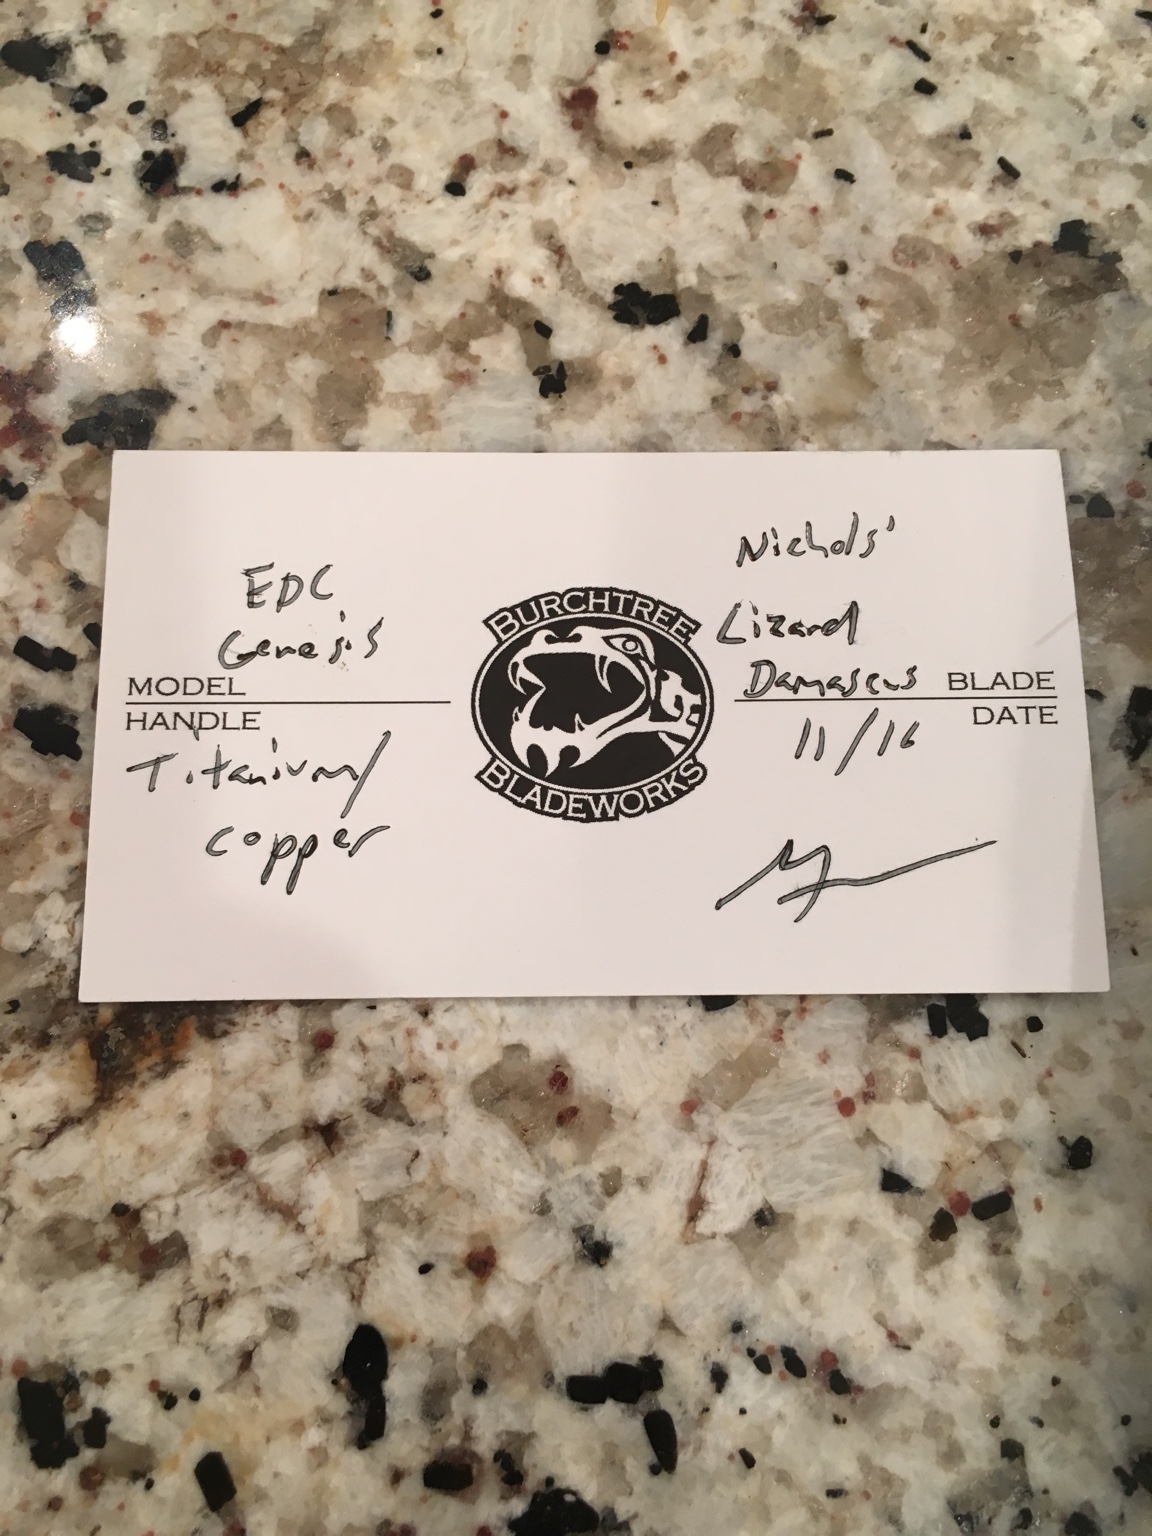 EDC
Genesis
MODEL
HANDLE
Titanium/
Copper
BURCHTREE
BLADEWORKS
Nichols'
Lizard
Damascus BLADE
DATE
11/16